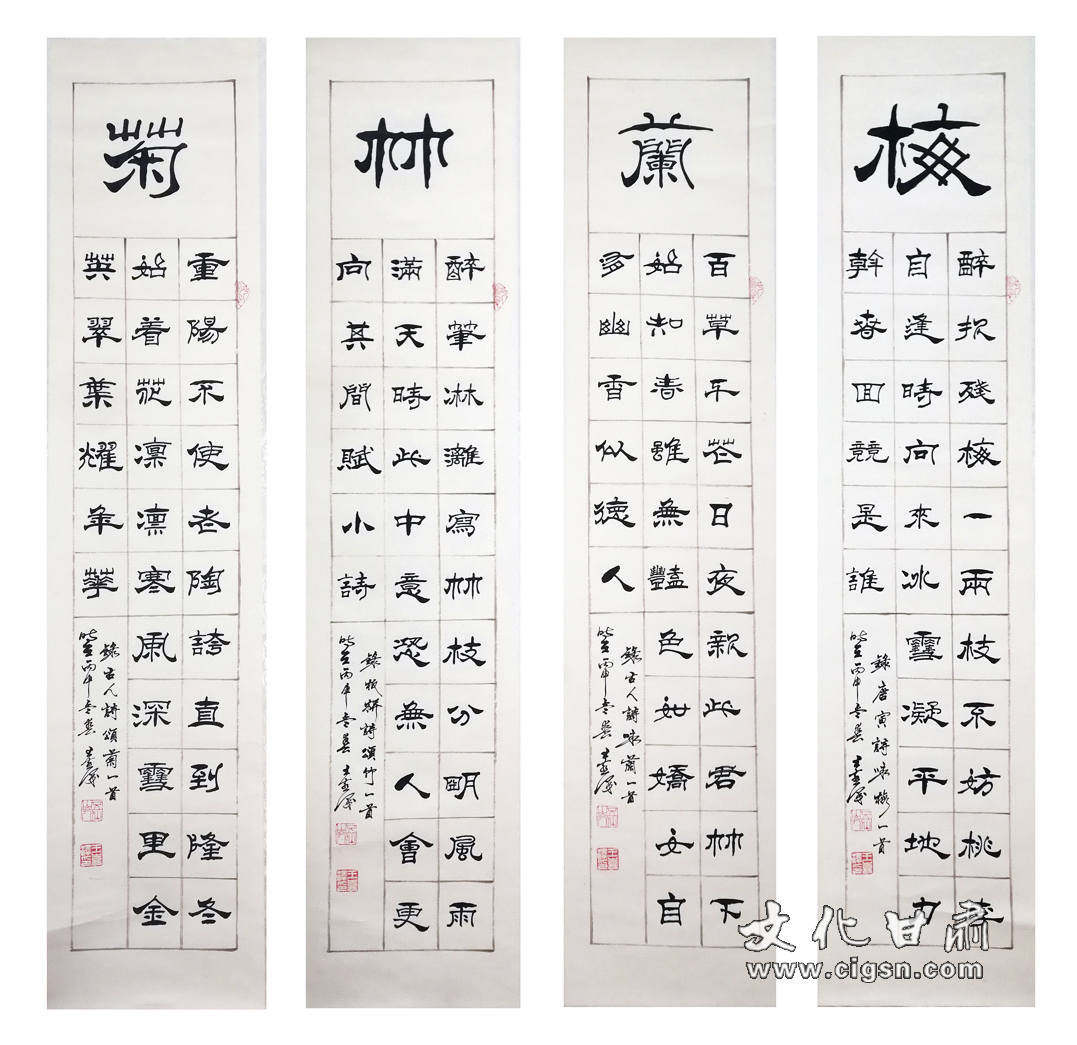 梅
醉折残梅一兩枝不妨桃李
自逢時向來冰雪凝平地力
幹春回競是誰
錄唐寅詩咏梅一首
丙申
蘭
百草千花日夜新此君竹下
始知春雖無豔色如嬌女自
多幽香似德人
錄古人詩咏蘭一首
丙申
竹
醉筆淋灕寫竹枝分明風雨
滿天時此中意恐無人會更
向其間賦小詩
錄詩頌竹一首
丙申
菊
重陽不使老陶誇直到隆冬
始着花凛凛寒風深雪里金
英翠葉耀年華
錄古人詩頌菊一首
丙申
文化甘肃
www.cigsn.com